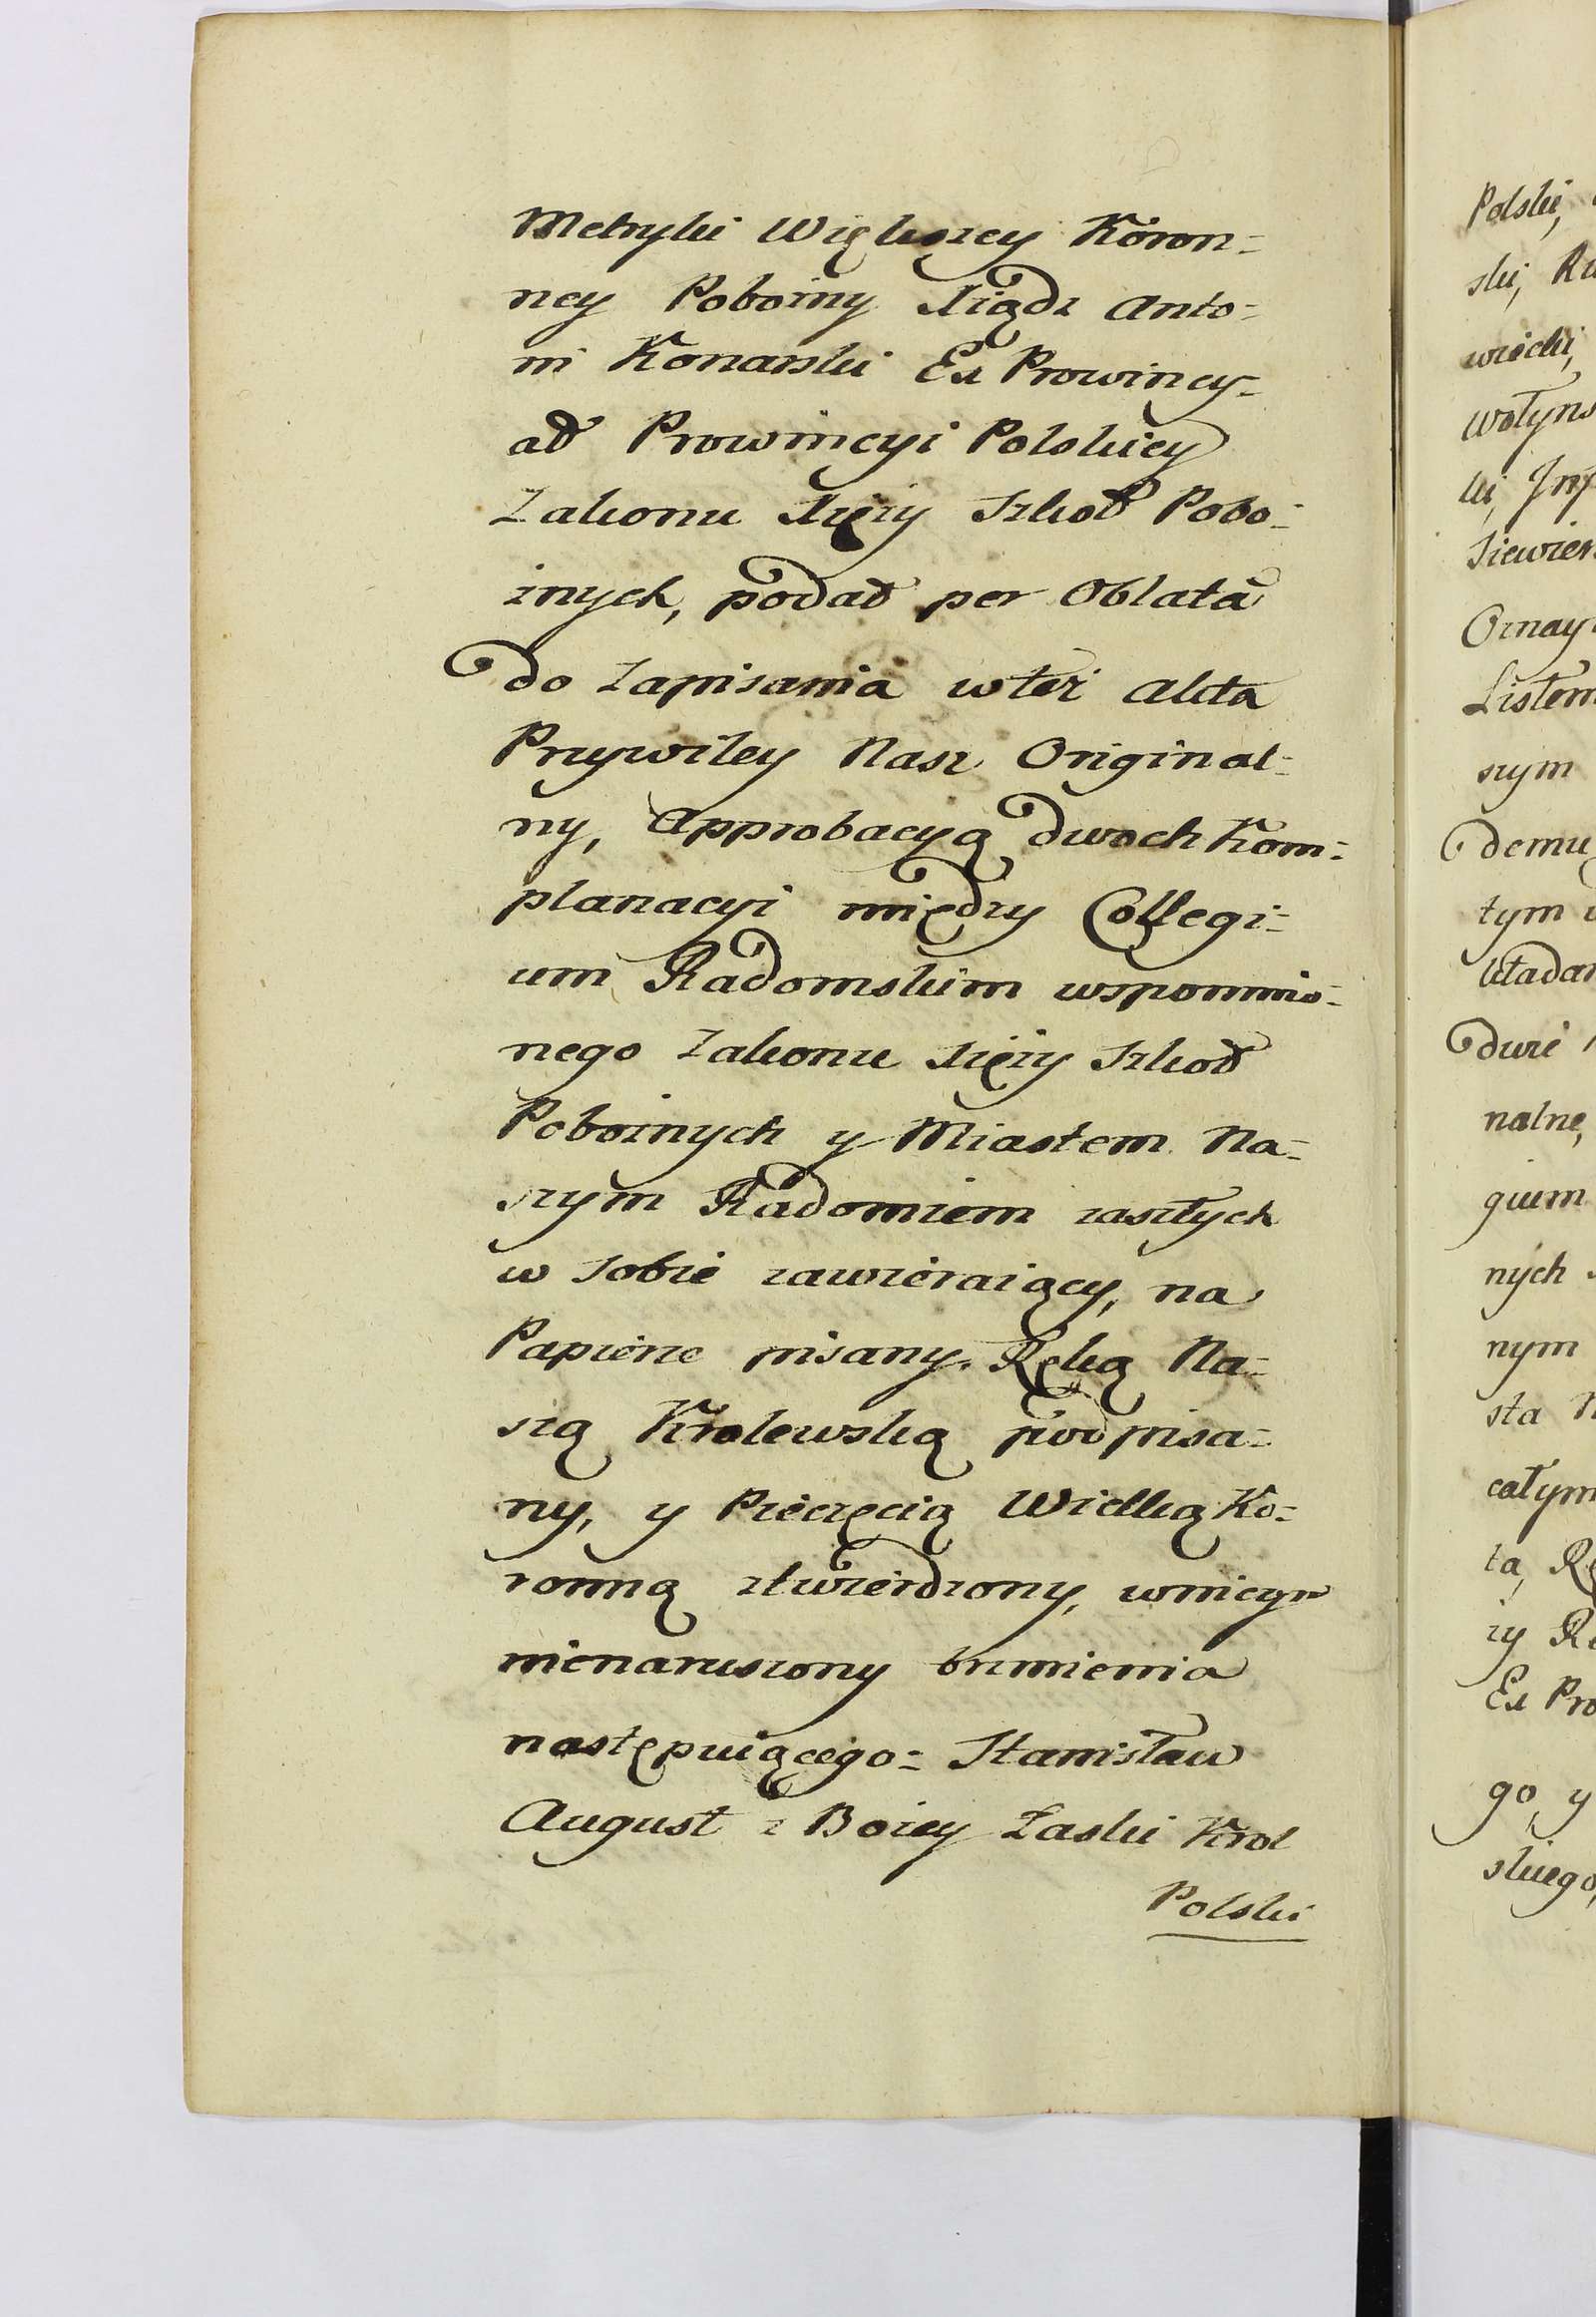 Metryki Większey Koron-
ney Pobożny Xiądz Anto-
ni Konarski Ex Prowincy-
ał Prowincyi Polskiey
Zakonu Xięży Szkoł Pobo-
żnych, podał per Oblatą
do Zapisania w też Akta
Przywiley Nasz Original-
ny, Approbacyą dwoch Kom-
planacyi między Collegi-
um Radomskim wspomnio-
nego Zakonu Xięży Szkoł
Pobożnych y Miastem Na-
szym Radomiem zaszłych
w Sobie zawieraiący, na
Papierze pisany, Ręką Na-
szą Krolewską podpisa-
ny, y Pieczęcią Wielką Ko-
ronną ztwierdzony, w niczym
nienaruszony brzmienia
następuiącego = Stanisław
August z Bożey Łaski Krol
Polski
Polski,
ski,
wiecki,
wołyns
ki, Inf
Siewier
Oznay
Listem
szym
demu
tym
kładan
dwie
nalne,
gium
nych
nym
sta
całym
ta,
ży
Ex Pro
go, y
skiego,